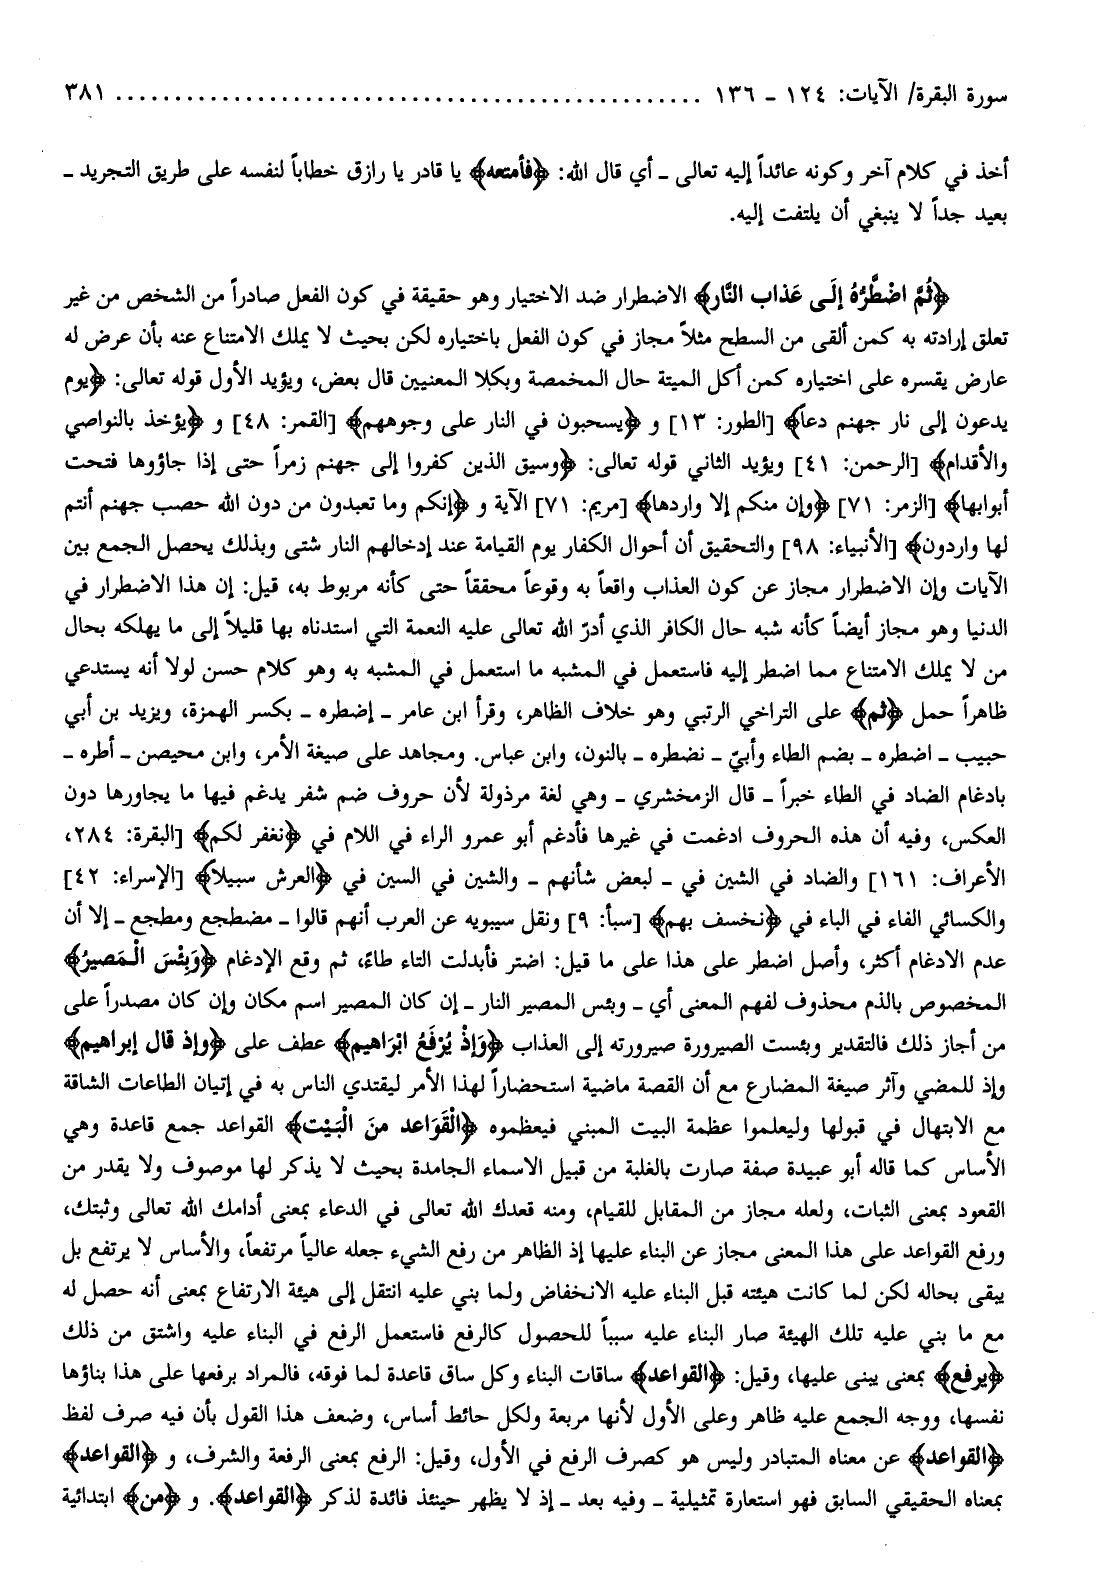 سورة البقرة/ الآيات: ١٢٤ - ١٣٦ ................................................ ٣٨١
أخذ في كلام آخر وكونه عائداً إليه تعالى - أي قال الله: ﴿فأمتعه﴾ يا قادر يا رازق خطاباً لنفسه على طريق التجريد -
بعيد جداً لا ينبغي أن يلتفت إليه.
﴿ثُمَّ اضْطَّرُهُ إلَى عَذاب النَّار﴾ الاضطرار ضد الاختيار وهو حقيقة في كون الفعل صادراً من الشخص من غير
تعلق إرادته به كمن ألقى من السطح مثلاً مجاز في كون الفعل باختياره لكن بحيث لا يملك الامتناع عنه بأن عرض له
عارض يقسره على اختياره كمن أكل الميتة حال المخمصة وبكلا المعنيين قال بعض، ويؤيد الأول قوله تعالى: ﴿يوم
يدعون إلى نار جهنم دعاً﴾ [الطور: ١٣] و ﴿يسحبون في النار على وجوههم﴾ [القمر: ٤٨] و ﴿يؤخذ بالنواصي
والأقدام﴾ [الرحمن: ٤١] ويؤيد الثاني قوله تعالى: ﴿وسيق الذين كفروا إلى جهنم زمراً حتى إذا جاؤوها فتحت
أبوابها﴾ [الزمر: ٧١] ﴿وإن منكم إلا واردها﴾ [مريم: ٧١] الآية و ﴿إنكم وما تعبدون من دون الله حصب جهنم أنتم
لها واردون﴾ [الأنبياء: ٩٨] والتحقيق أن أحوال الكفار يوم القيامة عند إدخالهم النار شتى وبذلك يحصل الجمع بين
الآيات وإن الاضطرار مجاز عن كون العذاب واقعاً به وقوعاً محققاً حتى كأنه مربوط به، قيل: إن هذا الاضطرار في
الدنيا وهو مجاز أيضاً كأنه شبه حال الكافر الذي أدرّ الله تعالى عليه النعمة التي استدناه بها قليلاً إلى ما يهلكه بحال
من لا يملك الامتناع مما اضطر إليه فاستعمل في المشبه ما استعمل في المشبه به وهو كلام حسن لولا أنه يستدعي
ظاهراً حمل ﴿ثم﴾ على التراخي الرتبي وهو خلاف الظاهر، وقرأ ابن عامر - إضطره - بكسر الهمزة، ويزيد بن أبي
حبيب - اضطره - بضم الطاء وأبيّ - نضطره - بالنون، وابن عباس. ومجاهد على صيغة الأمر، وابن محيصن - أطره -
بادغام الضاد في الطاء خبراً - قال الزمخشري - وهي لغة مرذولة لأن حروف ضم شفر يدغم فيها ما يجاورها دون
العكس، وفيه أن هذه الحروف ادغمت في غيرها فأدغم أبو عمرو الراء في اللام في ﴿نغفر لكم﴾ [البقرة: ٢٨٤،
الأعراف: ١٦١] والضاد في الشين في - لبعض شأنهم - والشين في السين في ﴿العرش سبيلاً﴾ [الإسراء: ٤٢]
والكسائي الفاء في الباء في ﴿نخسف بهم﴾ [سبأ: ٩] ونقل سيبويه عن العرب أنهم قالوا - مضطجع ومطجع - إلا أن
عدم الادغام أكثر، وأصل اضطر على هذا على ما قيل: اضتر فأبدلت التاء طاءً، ثم وقع الإدغام ﴿وَبِئْسَ الْمَصيرُ﴾
المخصوص بالذم محذوف لفهم المعنى أي - وبئس المصير النار - إن كان المصير اسم مكان وإن كان مصدراً على
من أجاز ذلك فالتقدير وبئست الصيرورة صيرورته إلى العذاب ﴿وَإِذْ يُرْفَعُ ابْرَاهيم﴾ عطف على ﴿وإذ قال إبراهيم﴾
وإذ للمضي وآثر صيغة المضارع مع أن القصة ماضية استحضاراً لهذا الأمر ليقتدي الناس به في إتيان الطاعات الشاقة
مع الابتهال في قبولها وليعلموا عظمة البيت المبني فيعظموه ﴿الْقَوَاعد منَ الْبَيْت﴾ القواعد جمع قاعدة وهي
الأساس كما قاله أبو عبيدة صفة صارت بالغلبة من قبيل الاسماء الجامدة بحيث لا يذكر لها موصوف ولا يقدر من
القعود بمعنى الثبات، ولعله مجاز من المقابل للقيام، ومنه قعدك الله تعالى في الدعاء بمعنى أدامك الله تعالى وثبتك،
ورفع القواعد على هذا المعنى مجاز عن البناء عليها إذ الظاهر من رفع الشيء جعله عالياً مرتفعاً، والأساس لا يرتفع بل
يبقى بحاله لكن لما كانت هيئته قبل البناء عليه الانخفاض ولما بني عليه انتقل إلى هيئة الارتفاع بمعنى أنه حصل له
مع ما بني عليه تلك الهيئة صار البناء عليه سبباً للحصول كالرفع فاستعمل الرفع في البناء عليه واشتق من ذلك
﴿يرفع﴾ بمعنى يبنى عليها، وقيل: ﴿القواعد﴾ ساقات البناء وكل ساق قاعدة لما فوقه، فالمراد برفعها على هذا بناؤها
نفسها، ووجه الجمع عليه ظاهر وعلى الأول لأنها مربعة ولكل حائط أساس، وضعف هذا القول بأن فيه صرف لفظ
﴿القواعد﴾ عن معناه المتبادر وليس هو كصرف الرفع في الأول، وقيل: الرفع بمعنى الرفعة والشرف، و ﴿القواعد﴾
بمعناه الحقيقي السابق فهو استعارة تمثيلية - وفيه بعد - إذ لا يظهر حينئذ فائدة لذكر ﴿القواعد﴾. و ﴿من﴾ ابتدائية